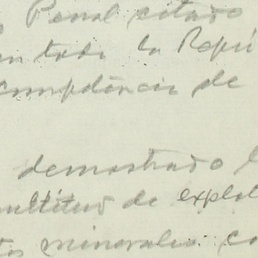 Penal citado
en toda la Repú
competencia de
demostrado l
multitud de explot
minerales co